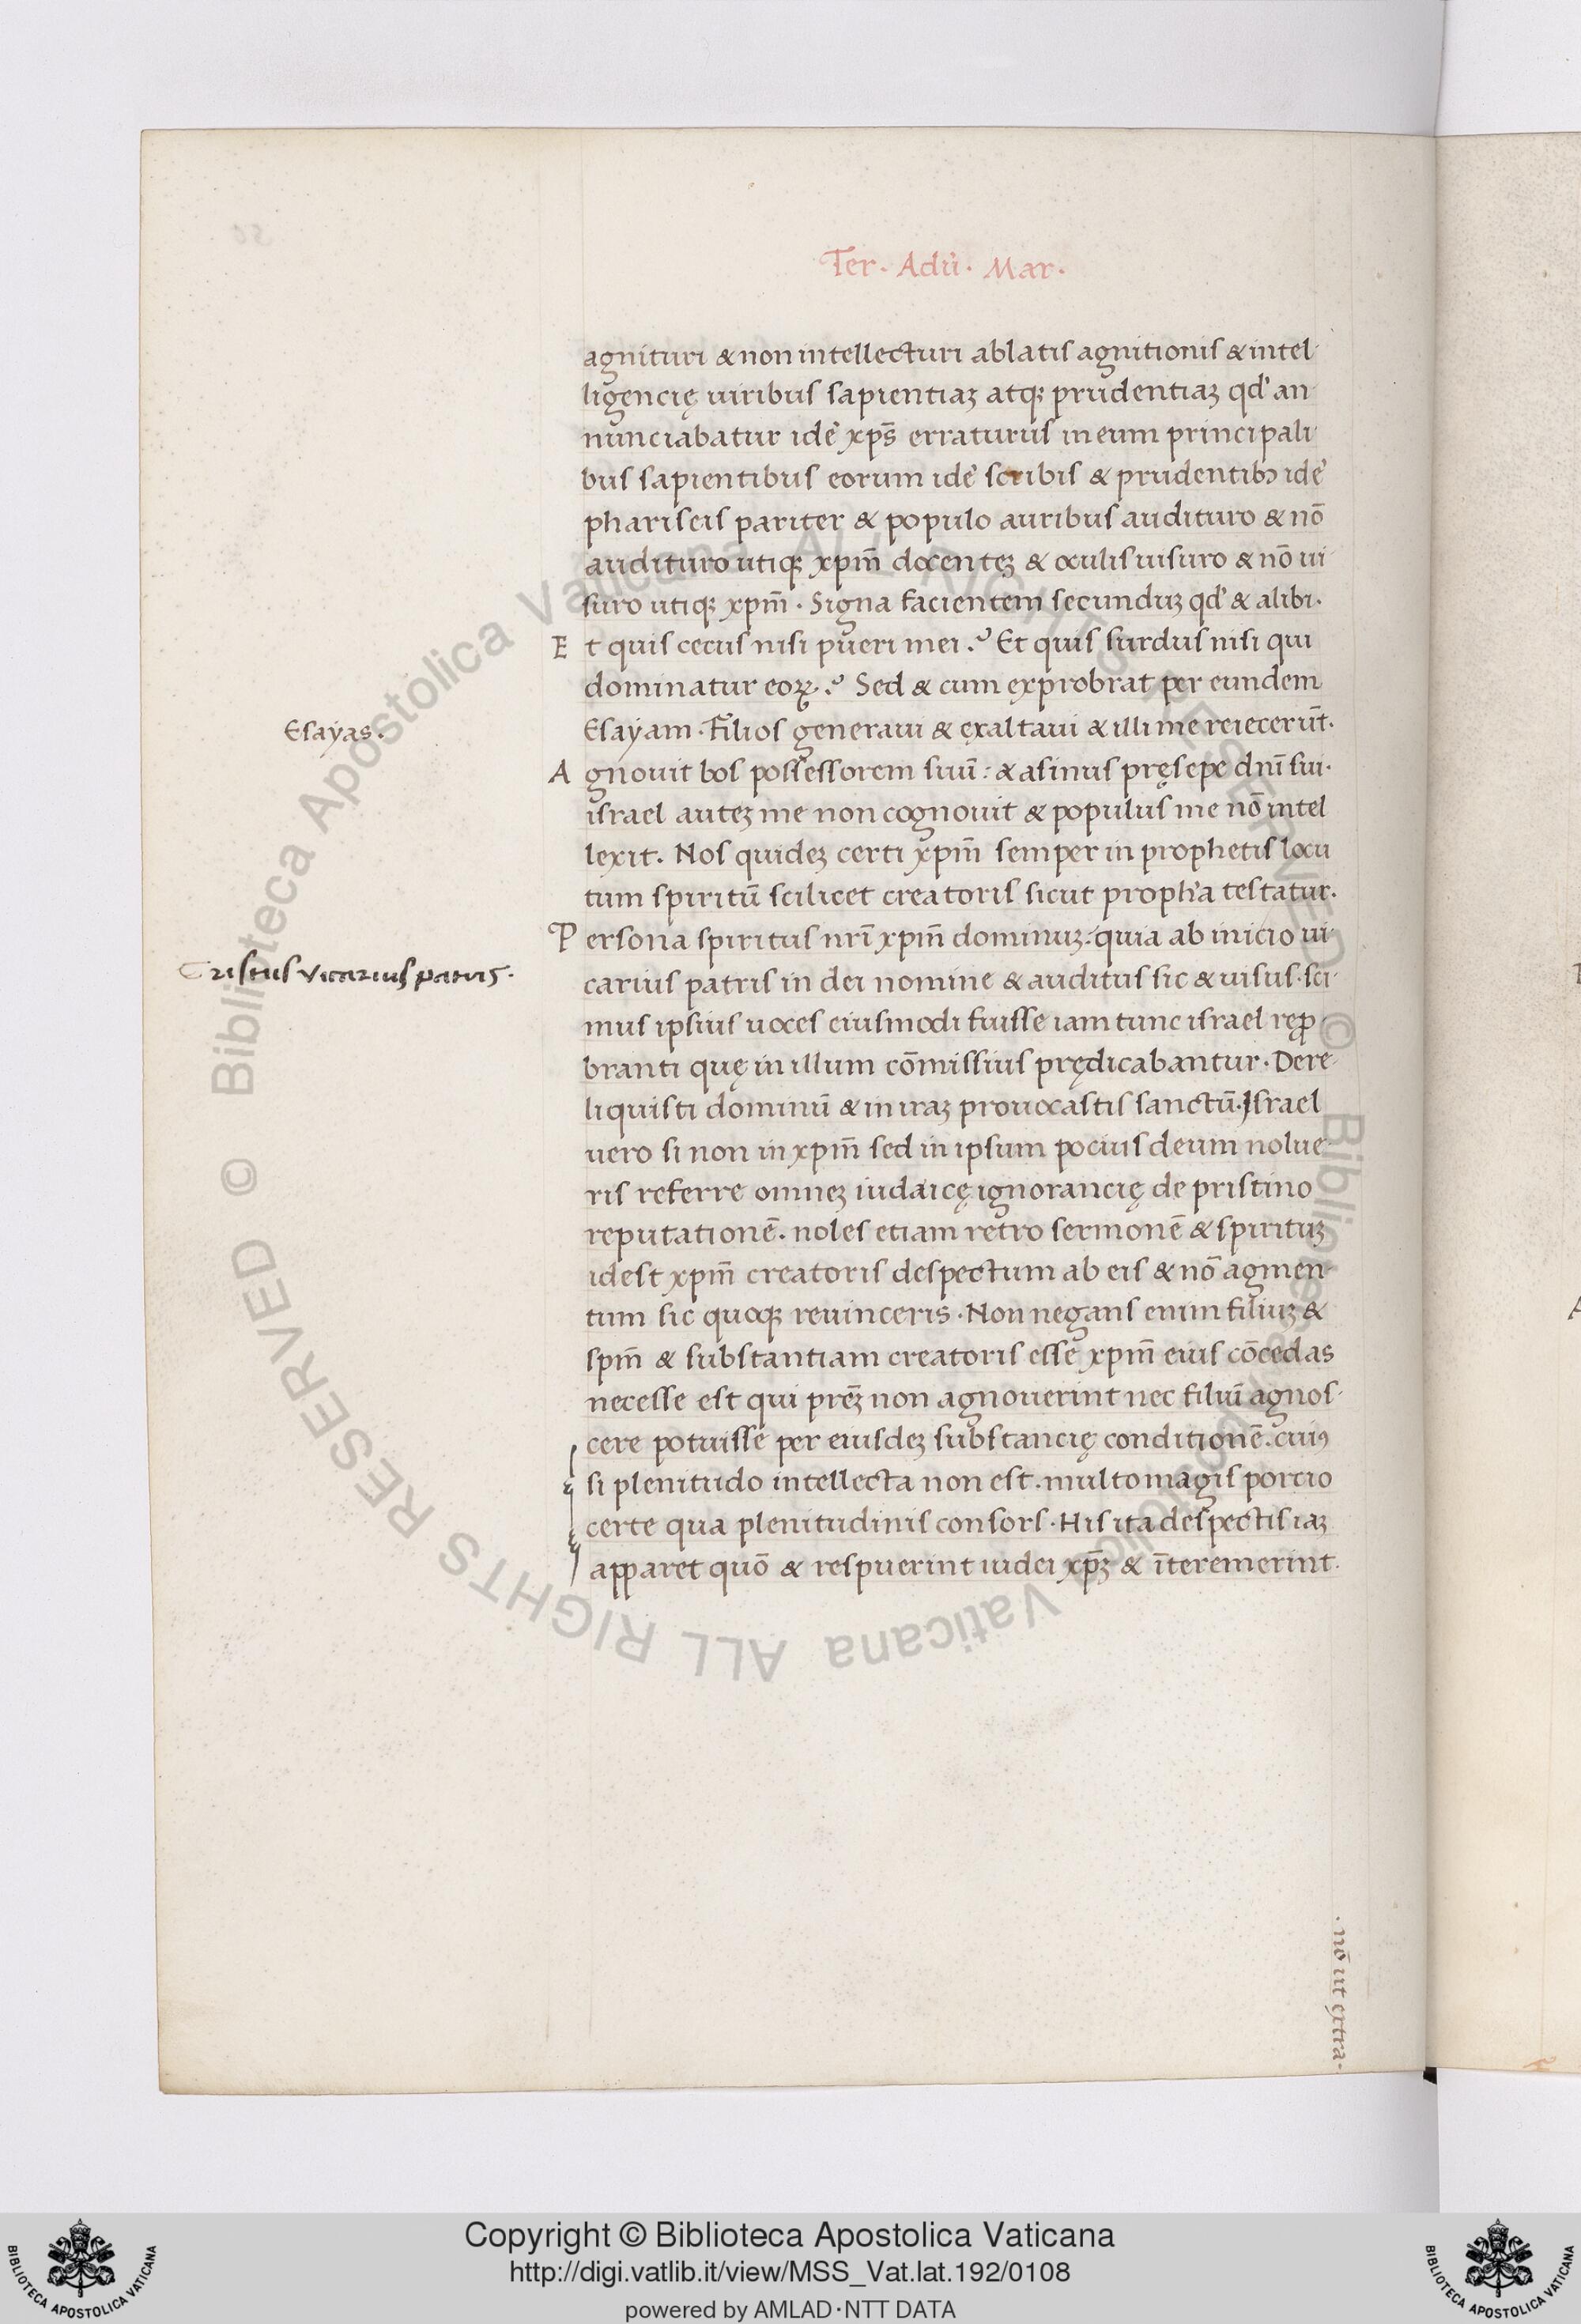 Ter. Adũ. Mar.
agnituri & non intellecturi ablatis agnitionis & intel-
ligencię uiribus sapientiaꝫ atqꝫ prudentiaꝫ qd' an-
nunciabatur idē xp̄s erraturus in eum principali-
bus sapientibus eorum idē scribis & prudentibꝰ idē
phariseis pariter & populo auribus audituro & nō
audituro utiqꝫ xpm̄ docenteꝫ & oculis uisuro & nō ui-
suro utiqꝫ xpm̄. Signa facientem secunduꝫ qd' & alibi.
Et quis cecus nisi pueri mei.? Et quis surdus nisi qui
dominatur eoꝝ.? Sed & cum exprobrat per eundem
Esayas.
Esayam. Filios generaui & exaltaui & illi me reiecerūt.
Agnouit bos possessorem suū: & asinus pręsepe dnī sui.
israel auteꝫ me non cognouit & populus me nō intel
lexit. Nos quideꝫ certi xpm̄ semper in prophetis locu
tum spiritū scilicet creatoris sicut proph'a testatur.
Persona spiritus nrī xpm̄ dominuꝫ. quia ab inicio ui-
Cristus Vicarius patris.
carius patris in dei nomine & auditus sic & uisus. sci-
mus ipsius uoces eiusmodi fuisse iam tunc israel ręꝓ-
branti quę in illum cōmissius prędicabantur. Dere-
liquisti dominū & in iraꝫ prouocastis sanctū. Israel
uero si non in xpm̄ sed in ipsum pocius deum nolue-
ris referre omneꝫ iudaicę ignorancię de pristino
reputationē. noles etiam retro sermonē & spirituꝫ
idest xpm̄ creatoris despectum ab eis & nō agmen-
tum sic quoqꝫ reuinceris. Non negans enim filiuꝫ &
spm̄ & substantiam creatoris esse xpm̄ eius cōcedas
necesse est qui prēꝫ non agnouerint nec filiū agnos-
cere potuisse per eiusdeꝫ substancię conditionē. cuiꝰ
si plenitudo intellecta non est. multo magis porcio
certe qua plenitudinis consors. His ita despectis iaꝫ
apparet quō & respuerint iudei xp̄ꝫ & īteremerint.
. nō ut extra.
Biblioteca Apostolica Vaticana ALL RIGHTS RESERVED ©
Biblioteca Apostolica Vaticana ALL RIGHTS RESERVED ©
BIBLIOTECA APOSTOLICA VATICANA
Copyright © Biblioteca Apostolica Vaticana
http://digi.vatlib.it/view/MSS_Vat.lat.192/0108
powered by AMLAD·NTT DATA
BIBLIOTECA APOSTOLICA VATICANA